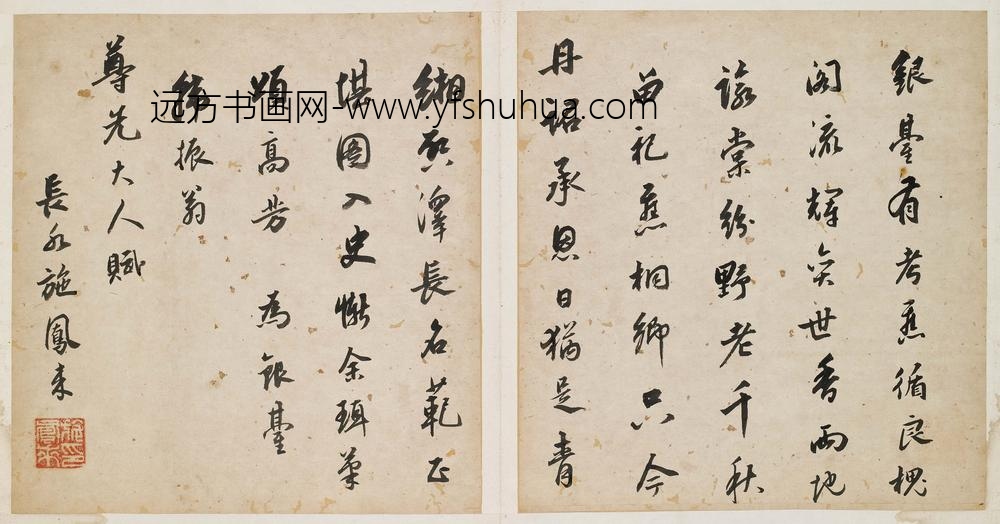 銀臺有考舊循良槐
閣流輝奕世香兩地
謠棠紛野老千秋
留祀舊桐鄉只今
丹詔承恩日猶是青
緗啟澤長名範正
堪圖入史慚余珥筆
頌高芳 為銀臺
振翁
尊先大人賦
長水施鳳来
远方书画网-www.yfshuhua.com